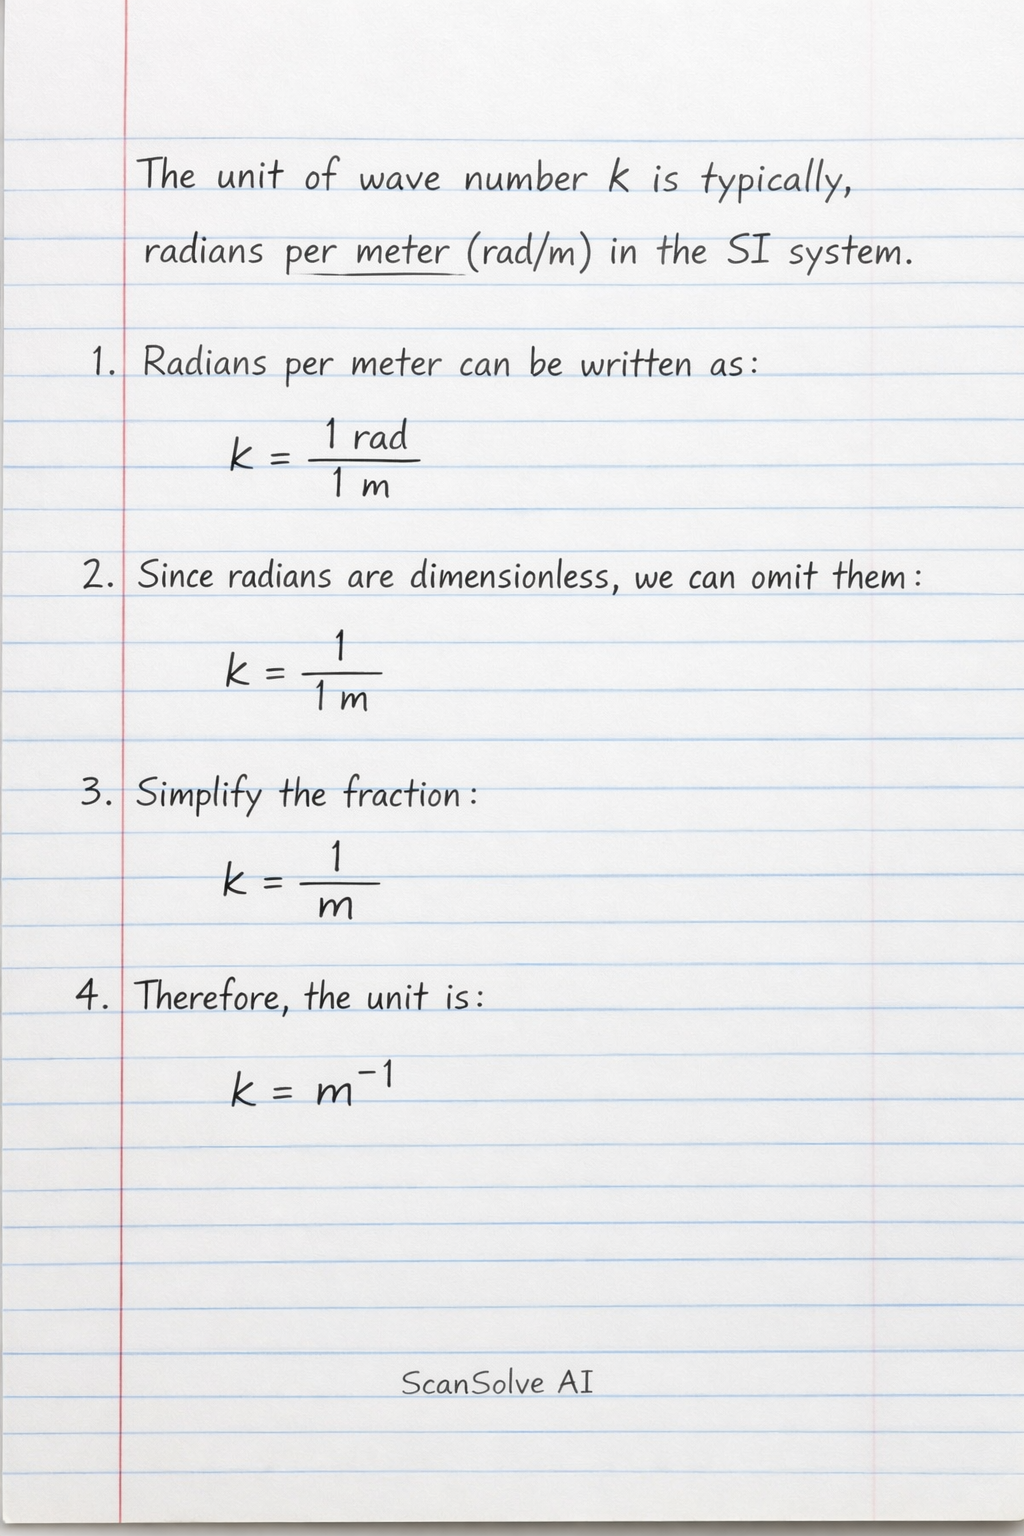 The unit of wave number k is typically,
radians per meter (rad/m) in the SI system.
1. Radians per meter can be written as:
k = 1 rad / 1 m
2. Since radians are dimensionless, we can omit them:
k = 1 / 1 m
3. Simplify the fraction:
k = 1 / m
4. Therefore, the unit is:
k = m⁻¹
ScanSolve AI